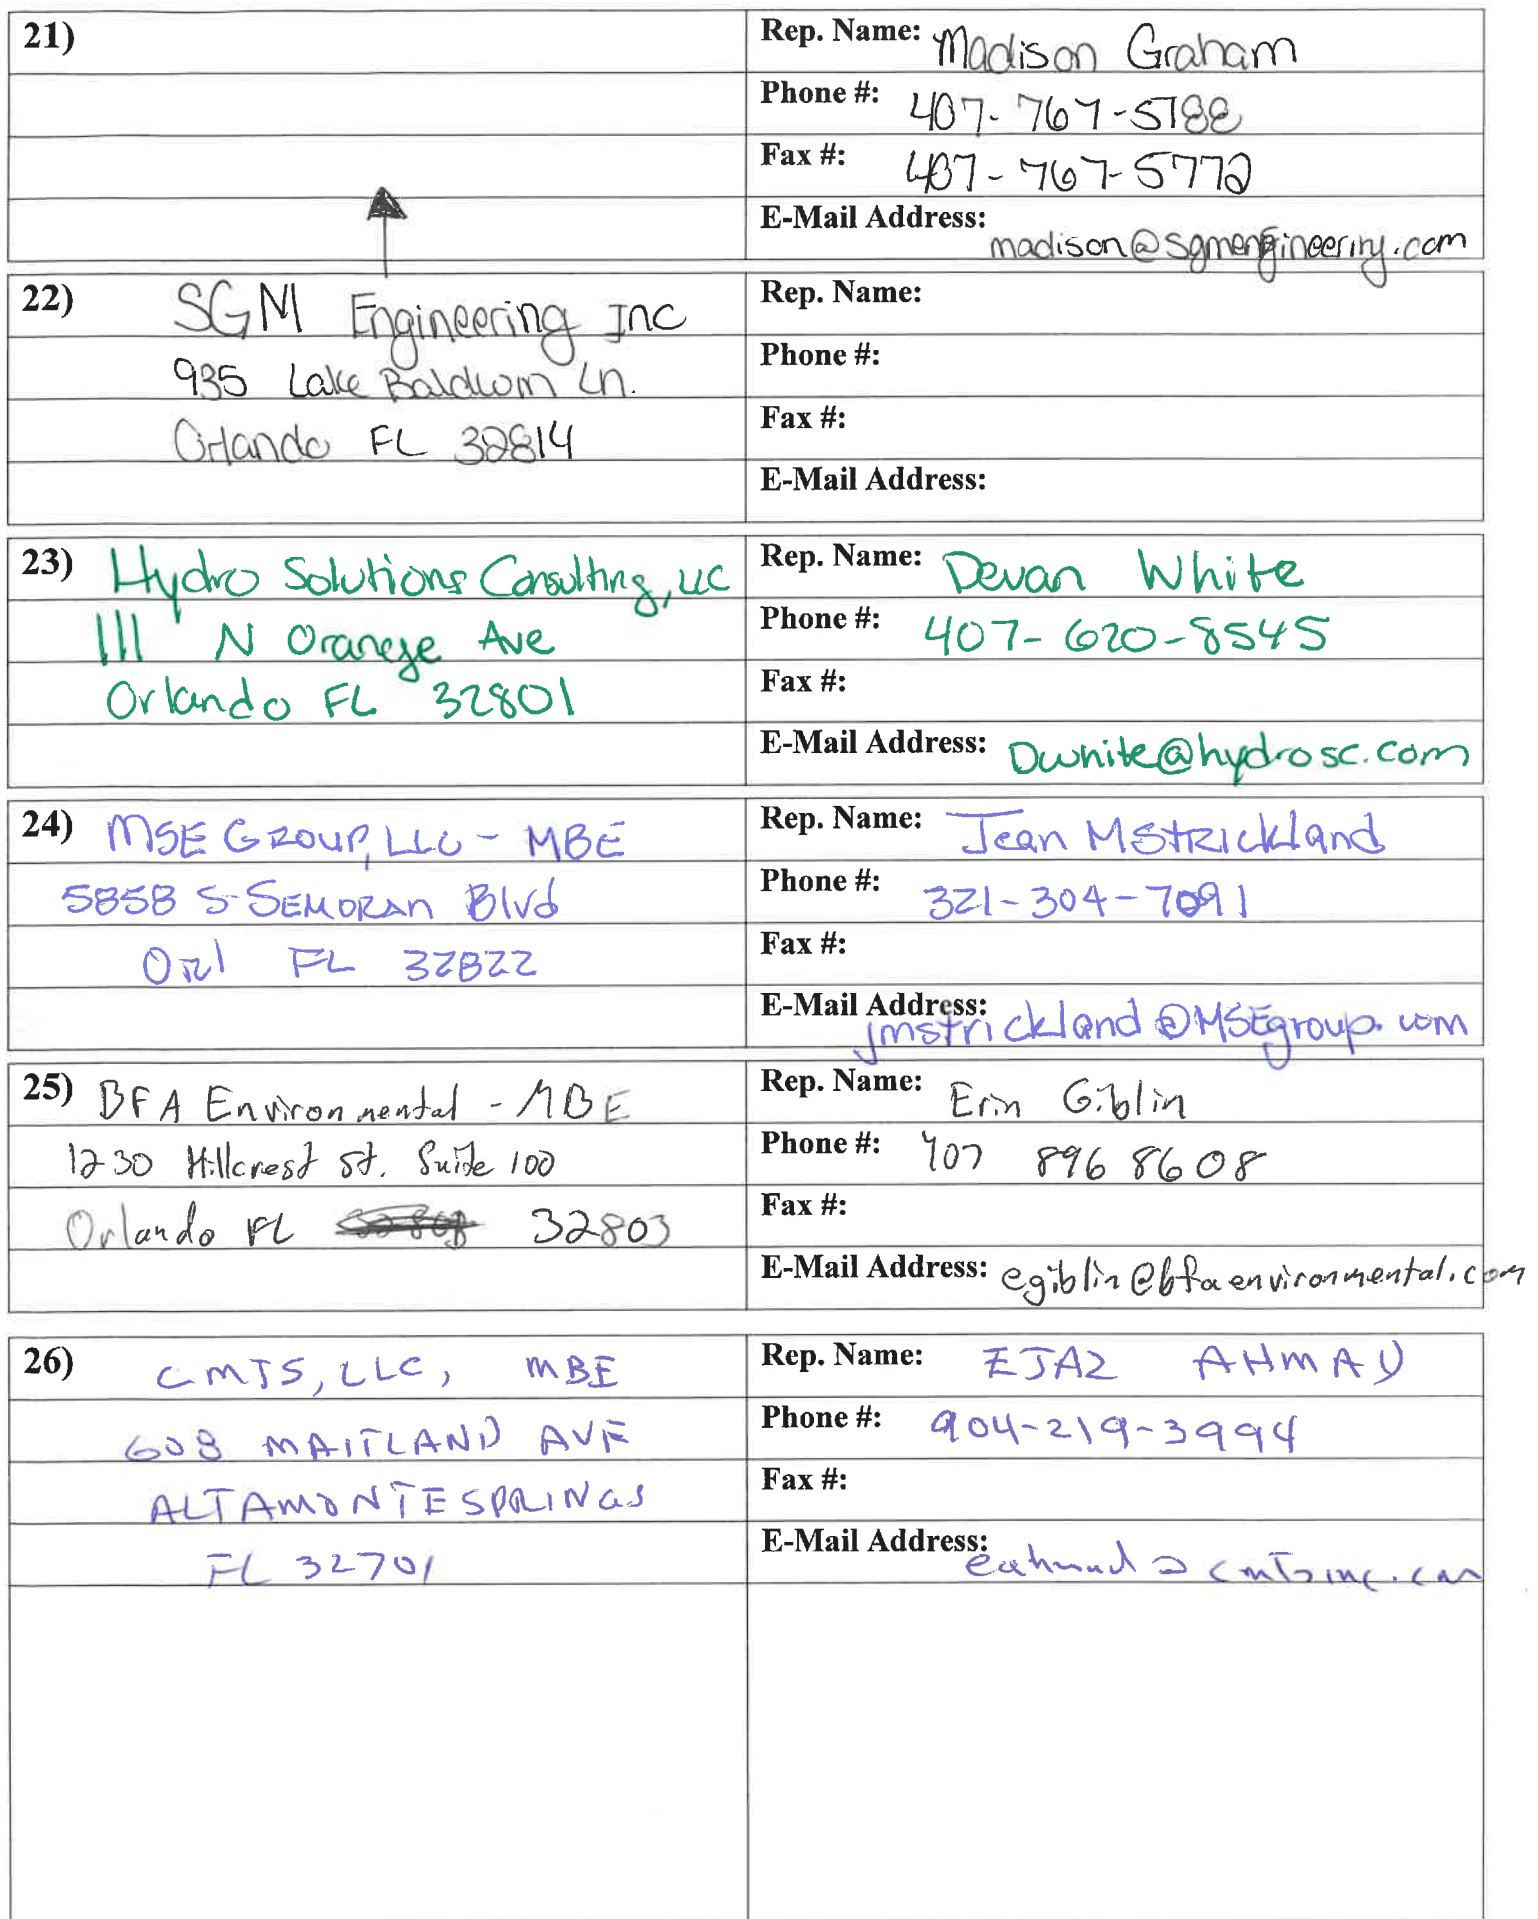 21)
Rep. Name: Madison Graham
Phone #: 407-767-5188
Fax #: 407-767-5772
E-Mail Address: madison@sgmengineering.com
22) SGM Engineering Inc
935 Lake Baldwin Ln.
Orlando FL 32814
Rep. Name:
Phone #:
Fax #:
E-Mail Address:
23) Hydro Solutions Consulting, LLC
111 N Orange Ave
Orlando FL 32801
Rep. Name: Devan White
Phone #: 407-620-8545
Fax #:
E-Mail Address: Dwhite@hydrosc.com
24) MSE GROUP, LLC - MBE
5858 S-SEMORAN Blvd
Orl FL 32822
Rep. Name: Jean MStrickland
Phone #: 321-304-7091
Fax #:
E-Mail Address: jmstrickland@MSEgroup.com
25) BFA Environmental - MBE
1230 Hillcrest St. Suite 100
Orlando FL 32803
Rep. Name: Erin Giblin
Phone #: 407 896 8608
Fax #:
E-Mail Address: egiblin@bfaenvironmental.com
26) CMTS, LLC, MBE
608 MAITLAND AVE
ALTAMONTE SPRINGS
FL 32701
Rep. Name: EJAZ AHMAD
Phone #: 904-219-3994
Fax #:
E-Mail Address: eahmad@cmtsinc.com